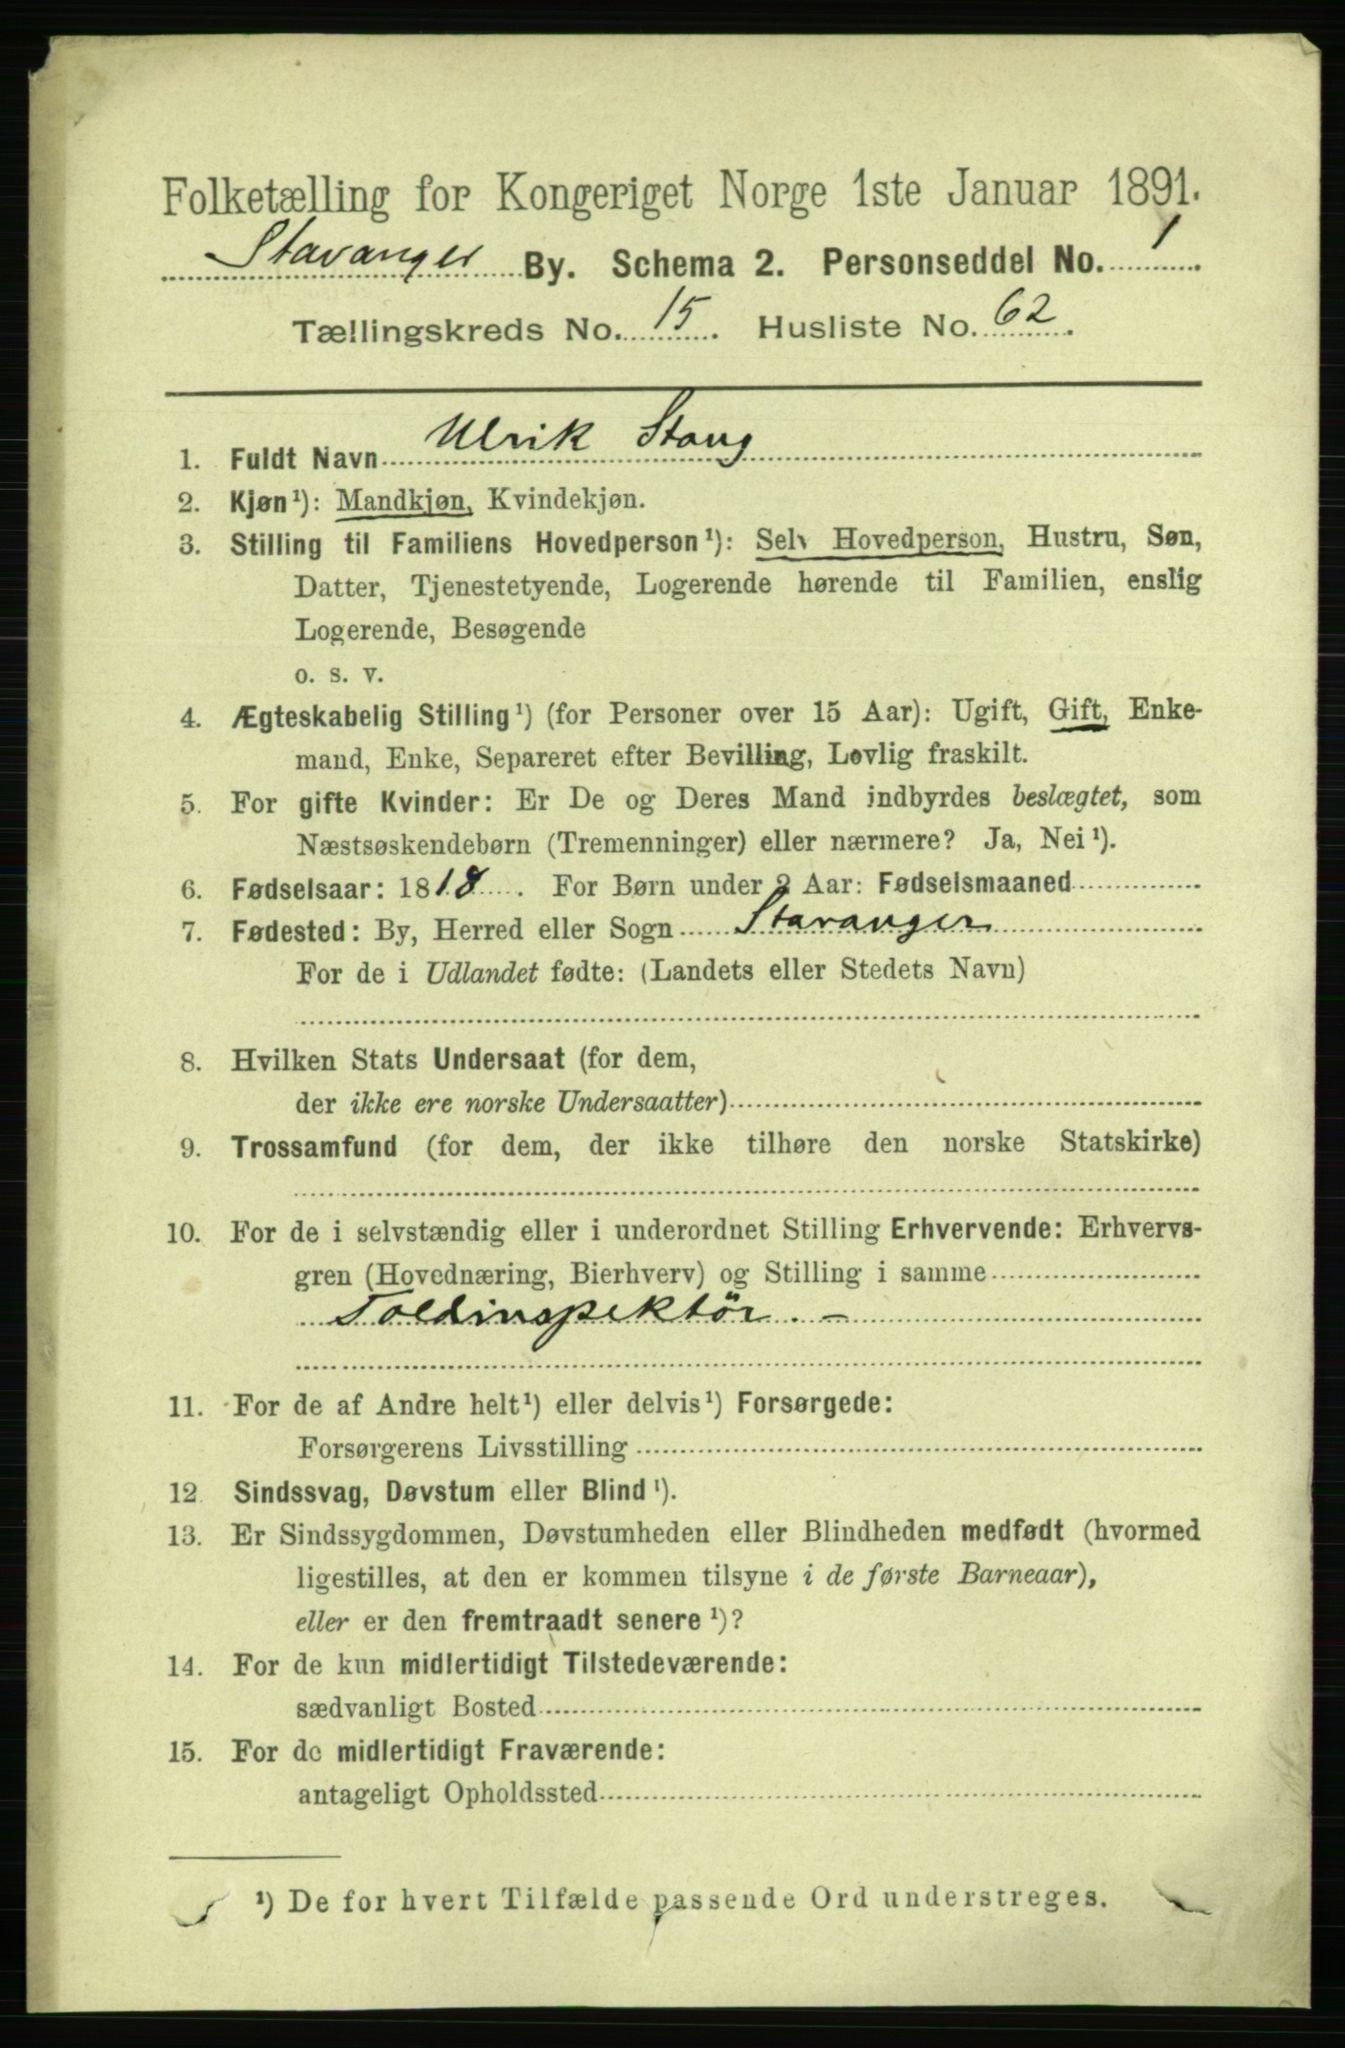 Folketælling for Kongeriget Norge 1ste Januar 1891.
Stavanger By. Schema 2. Personseddel No. 1
Tællingskreds No. 15. Husliste No. 62.
1. Fuldt Navn Ulrik Stang
2. Kjøn¹): Mandkjøn, Kvindekjøn.
3. Stilling til Familiens Hovedperson¹): Selv Hovedperson, Hustru, Søn,
Datter, Tjenestetyende, Logerende hørende til Familien, enslig
Logerende, Besøgende
o. s. v.
4. Ægteskabelig Stilling¹) (for Personer over 15 Aar): Ugift, Gift, Enke-
mand, Enke, Separeret efter Bevilling, Lovlig fraskilt.
5. For gifte Kvinder: Er De og Deres Mand indbyrdes beslægtet, som
Næstsøskendebørn (Tremenninger) eller nærmere? Ja, Nei¹).
6. Fødselsaar: 1818. For Børn under 2 Aar: Fødselsmaaned
7. Fødested: By, Herred eller Sogn Stavanger
For de i Udlandet fødte: (Landets eller Stedets Navn)
8. Hvilken Stats Undersaat (for dem,
der ikke ere norske Undersaatter)
9. Trossamfund (for dem, der ikke tilhøre den norske Statskirke)
10. For de i selvstændig eller i underordnet Stilling Erhvervende: Erhvervs-
gren (Hovednæring, Bierhverv) og Stilling i samme
Toldinspektör. –
11. For de af Andre helt¹) eller delvis¹) Forsørgede:
Forsørgerens Livsstilling
12. Sindssvag, Døvstum eller Blind¹).
13. Er Sindssygdommen, Døvstumheden eller Blindheden medfødt (hvormed
ligestilles, at den er kommen tilsyne i de første Barneaar),
eller er den fremtraadt senere¹)?
14. For de kun midlertidigt Tilstedeværende:
sædvanligt Bosted
15. For de midlertidigt Fraværende:
antageligt Opholdssted
¹) De for hvert Tilfælde passende Ord understreges.